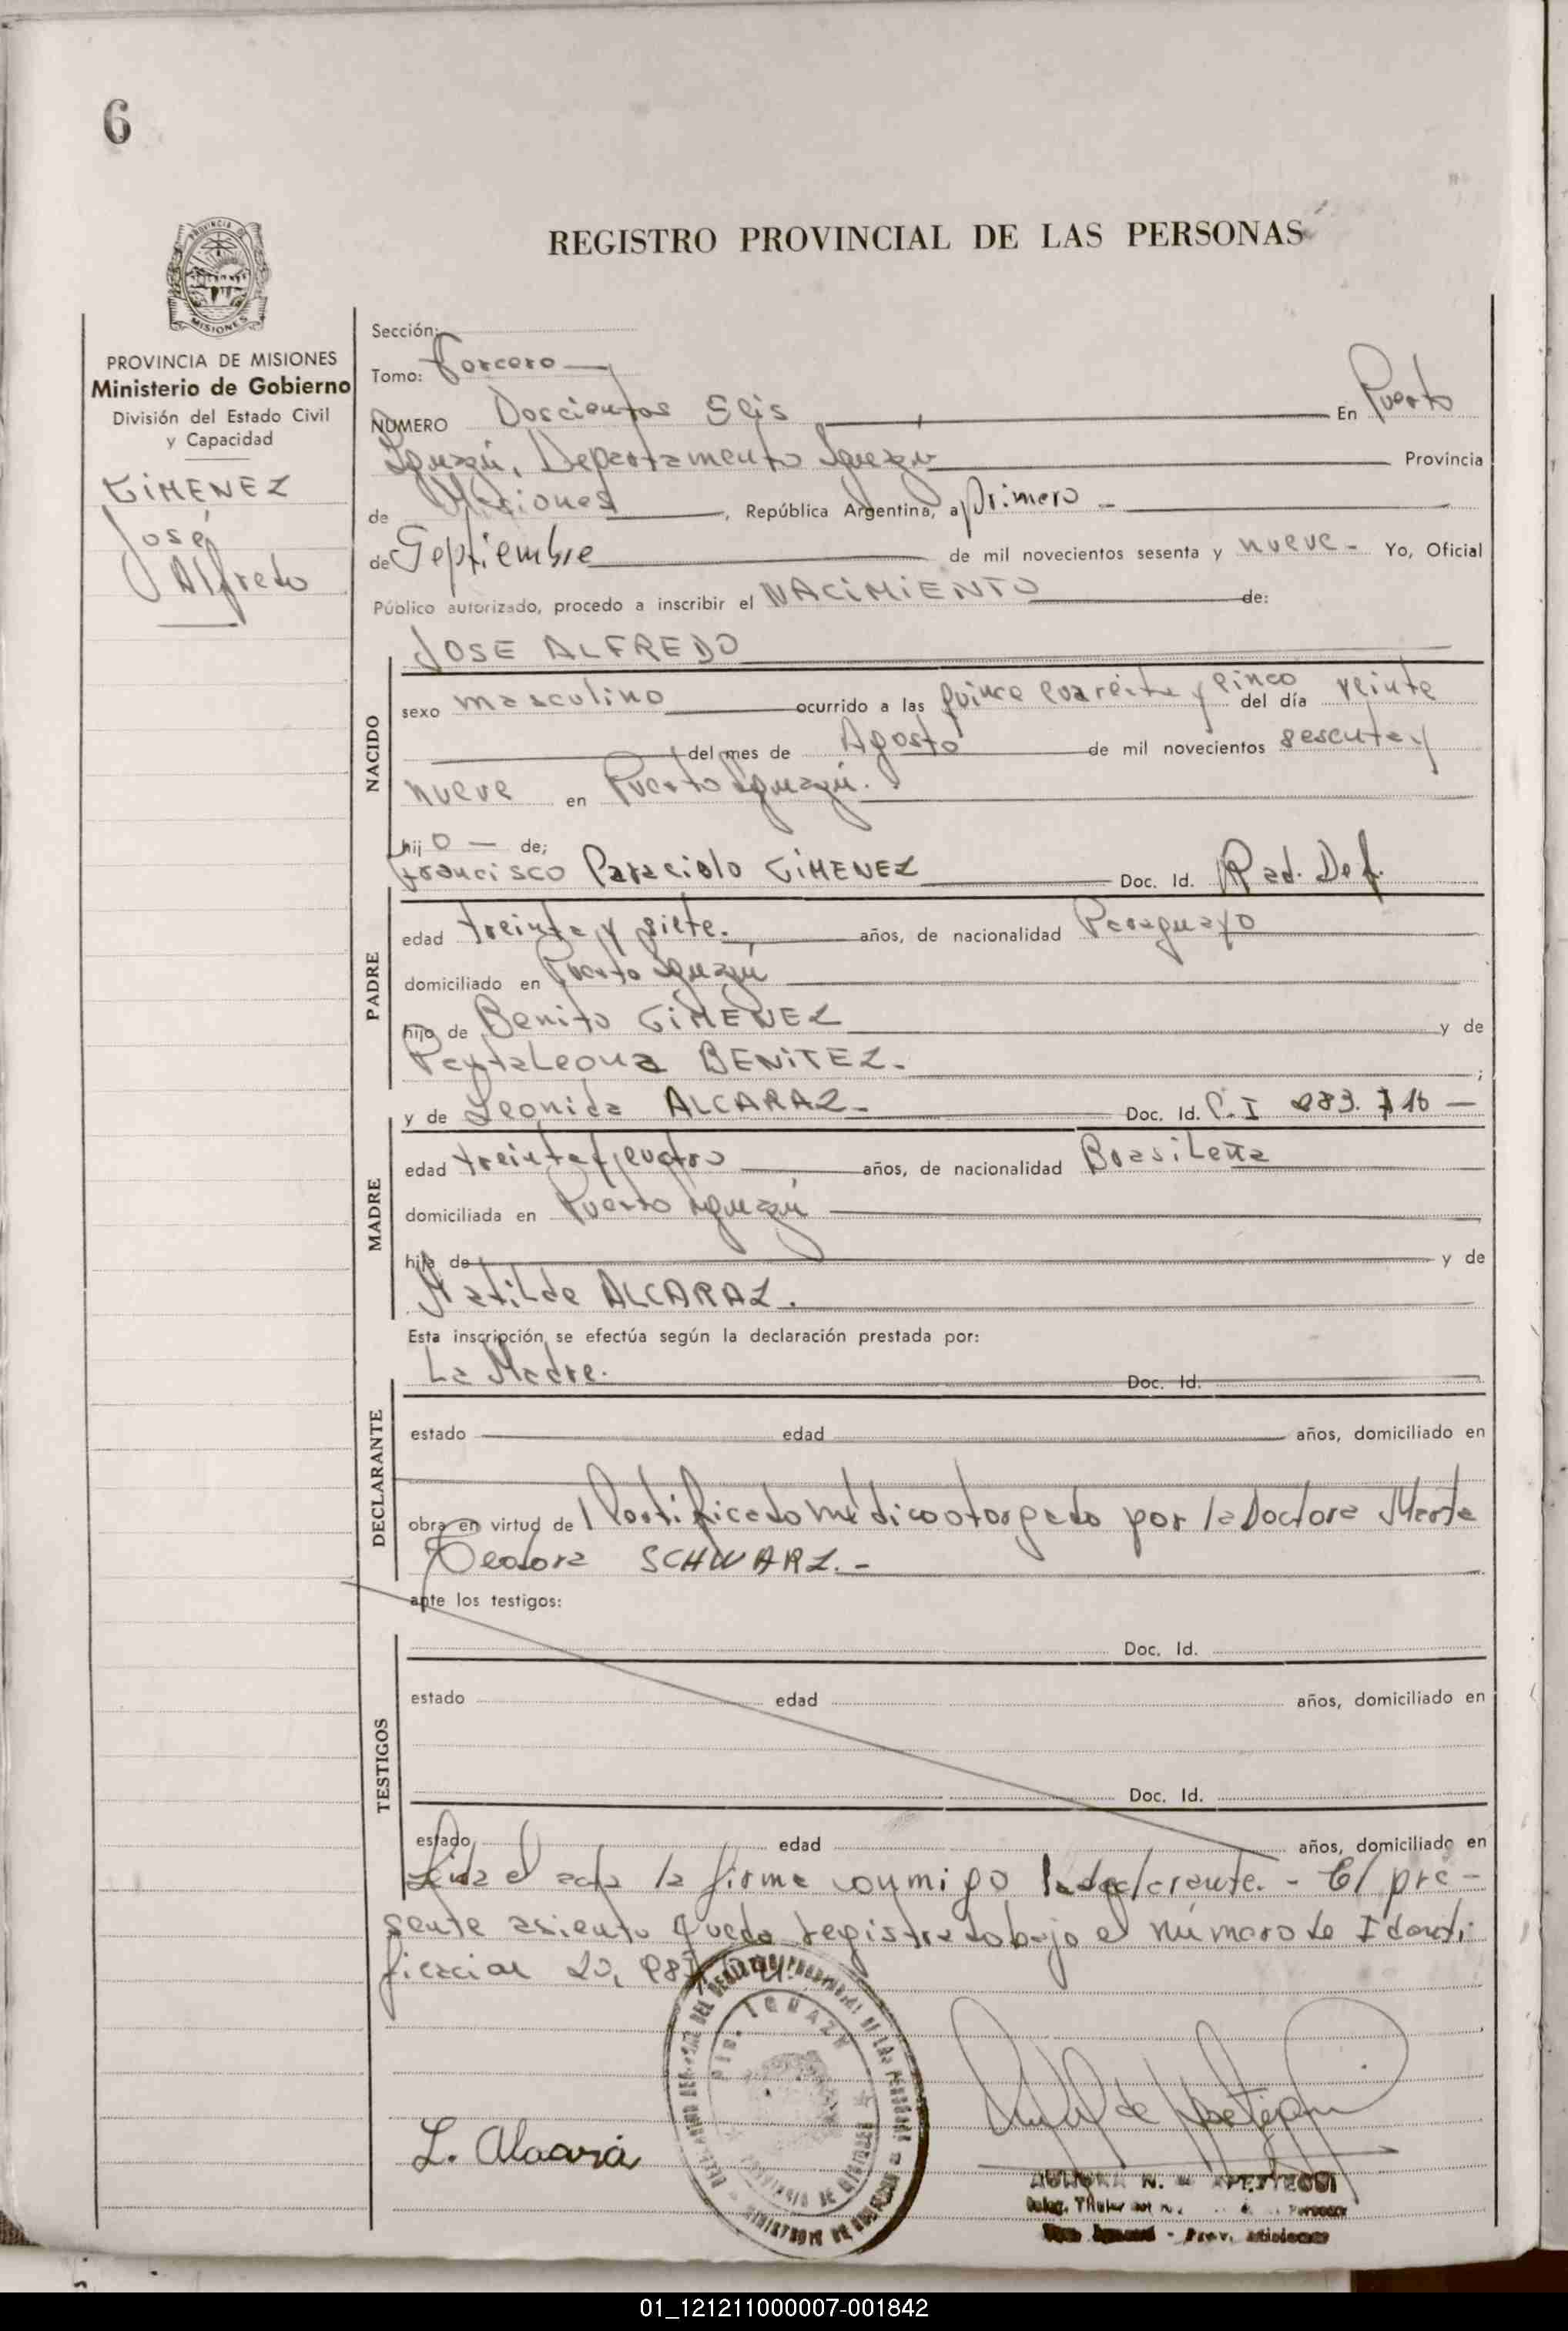 6
REGISTRO PROVINCIAL DE LAS PERSONAS
PROVINCIA DE
MISIONES
PROVINCIA DE MISIONES
Ministerio de Gobierno
División del Estado Civil
y Capacidad
GIMENEZ
José
Alfredo
Sección:
Tomo: Tercero
NUMERO Doscientos Seis En Puerto
Iguazú, Departamento Iguazú Provincia
de Misiones, República Argentina, a primero -
de Septiembre de mil novecientos sesenta y nueve - Yo, Oficial
Público autorizado, procedo a inscribir el NACIMIENTO de:
JOSE ALFREDO
NACIDO
sexo masculino ocurrido a las quince cuarenta y cinco del día veinte
del mes de Agosto de mil novecientos sesenta y
nueve en Puerto Iguazú.
hijo - de;
Francisco GIMENEZ Doc. Id. Rad. Def.
PADRE
edad treinta y siete. años, de nacionalidad Paraguayo
domiciliado en Puerto Iguazú
hijo de Benito GIMENEZ y de
Pantaleona BENITEZ. - ;
y de Leonida ALCARAZ - Doc. Id. C. I
MADRE
edad treinta y cuatro años, de nacionalidad Brasileña
domiciliada en Puerto Iguazú
hija de y de
Matilde ALCARAZ.
Esta inscripción se efectúa según la declaración prestada por:
La Madre. Doc. Id.
DECLARANTE
estado edad años, domiciliado en
obra en virtud de Certificado médico otorgado por la Doctora Marta
Teodora SCHWARZ. -
ante los testigos:
TESTIGOS
Doc. Id.
estado edad años, domiciliado en
Doc. Id.
estado edad años, domiciliado en
Leida el acta la firma conmigo la declarante. - El pre-
sente asiento queda registrado bajo el número de Identi
ficacion
L. Alcara
01_121211000007-001842